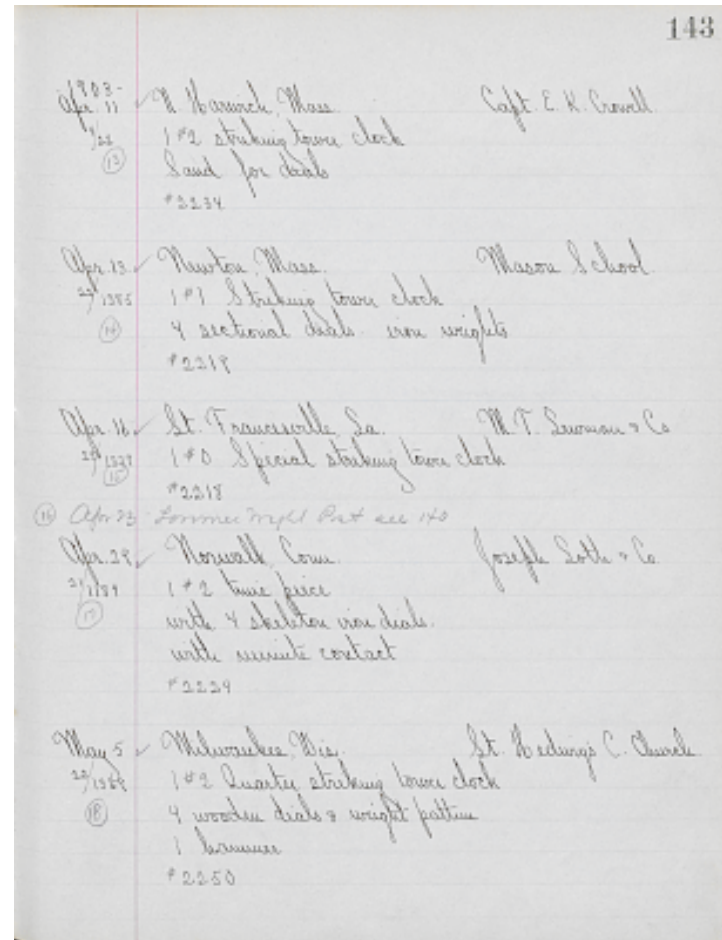 143
1903-
Apr. 11 ✓ N. Harwich, Mass. Capt. E. K. Crowell.
1 #2 striking tower clock
(13)
Sand for dials
#2234
Apr. 13 ✓ Newton, Mass. Mason School
1 #1 Striking tower clock
(14) 4 sectional dials. iron weights
Apr. 16 ✓ St. Francisville, La. M. T. & Co
1 #0 Special striking tower clock
(15)
#2218
(16) Apr 23 see 140
Apr. 29 ✓ Norwalk, Conn. Joseph & Co.
1 #2 time piece
(17) with 4 skeleton iron dials.
with minute contact
May 5 ✓ Milwaukee, Wis. St. Hedwigs C. Church
1 #2 Quarter striking tower clock
(18) 4 wooden dials &
1 hammer
#2250